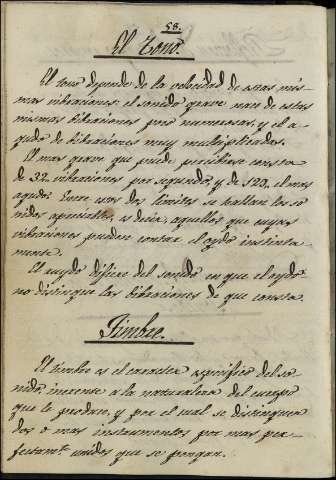 58.
El Tono.
El tono depende de la velocidad de esas mis-
mas vibraciones: el sonido grave nace de estas
mismas bibraciones poco numerosas, y el a-
gudo de bibraciones muy multiplicadas.
El mas grave que puede percibirse consta
de 32 vibraciones por segundo, y de 523, el mas
agudo. Entre esos dos limites se hallan los so-
nidos apreciables, es decir, aquellos que cuyas
vibraciones pueden contar el oydo instinta-
mente.
El ruydo difiere del sonido en que el oydo
no distingue las bibraciones de que consta.
Timbre.
El timbre es el caracter espesifico del so-
nido, inerense a la naturaleza del cuerpo
que lo produce, y por el cual se distinguen
dos o mas instrumentos por mas per-
fectamte unidos que se pongan.